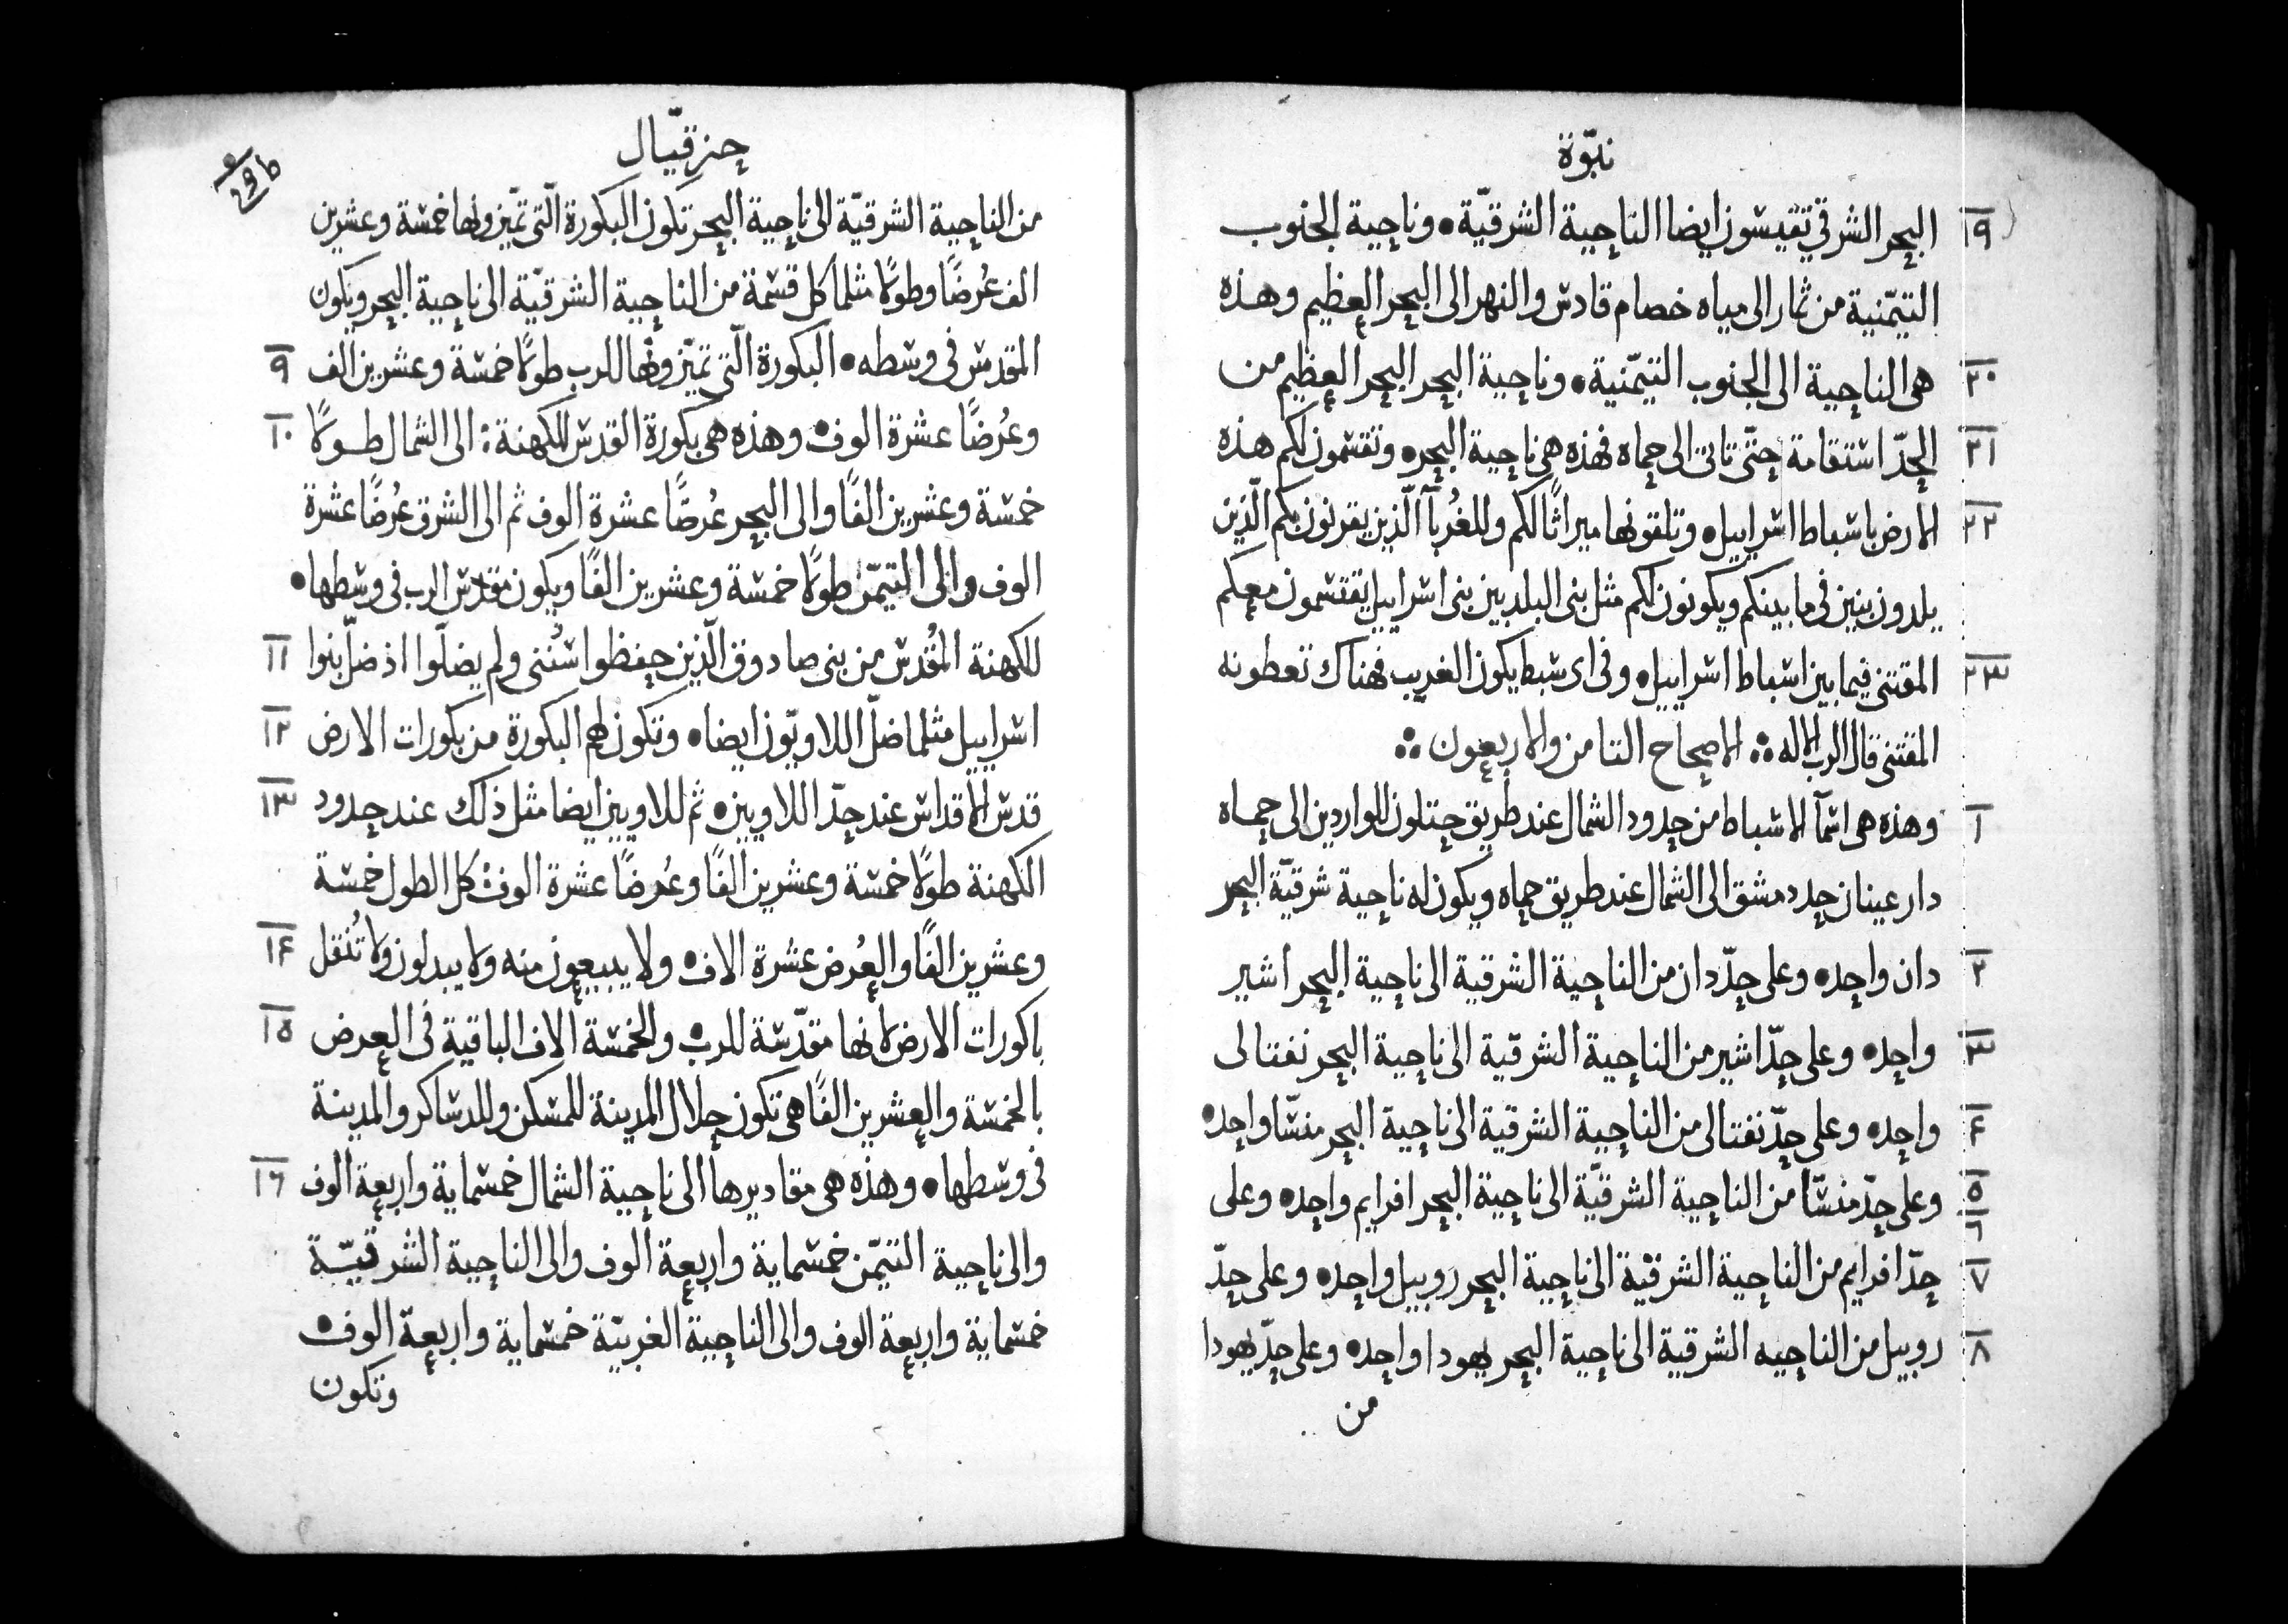 نبوّة
١٩ البحر الشرقي تقيسون ايضا الناحية الشرقيّة • وناحية الجنوب
التيمّنية من ثمار الى مياه خصام قادس والنهر الى البحر العظيم وهذه
٢٠ هى الناحية الى الجنوب التيمّنية • وناحية البحر البحر العظيم من
٢١ الحدّ استقامة حتّى تاتى الى حماه فهذه هى ناحية البحر • وتقسمون لكم هذه
٢٢ الارض باسباط اسراييل • وتلقونها ميراثًا لكم وللغُربآ الّذين يقربون بكم الّذين
يلدون بنين فى ما بينكم ويكونون لكم مثل بنى البلد بين بنى اسراييل يقتسمون معكم
٢٣ المقتنى فيما بين اسباط اسراييل • وفى اى سبط يكون الغريب فهناك تعطونه
المقتنى قال الرب الاله ܀ الاصحاح الثامن والاربعون ܀
١ وهذه هى اسمآ الاسباط من حدود الشمال عند طريق حتلون للواردين الى حماه
دار عينان حد دمشق الى الشمال عند طريق حماه ويكون له ناحية شرقيّة البحر
٢ دان واحد • وعلى حدّ دان من الناحية الشرقية الى ناحية البحر اشير
٣ واحد • وعلى حدّ اشير من الناحية الشرقية الى ناحية البحر نفتالى
۴ واحد • وعلى حدّ نفتالى من الناحية الشرقية الى ناحية البحر منسّا واحد •
٥ ٦ وعلى حدّ منسّا من الناحية الشرقيّة الى ناحية البحر افرايم واحد • وعلى
٧ حدّ افرايم من الناحية الشرقيّة الى ناحية البحر روبيل واحد • وعلى حدّ
٨ روبيل من الناحيه الشرقية الى ناحية البحر يهودا واحد • وعلى حدّ يهودا
من
حزقيّال
29b
من الناحية الشرقيّة الى ناحية البحر تكون البكورة الّتى تميّزونها خمسة وعشرين
الف عُرضًا وطولًا مثلما كل قسمة من الناحية الشرقيّة الى ناحية البحر ويكون
المقدس فى وسطه • البكورة الّتى تميّزونها للرب طولًا خمسة وعشرين الف ٩
وعُرضًا عشرة الوف • وهذه هى بكورة القدس للكهنة : الى الشمال طولًا ١٠
خمسة وعشرين الفًا والى البحر عُرضًا عشرة الوف ثم الى الشرق عُرضًا عشرة
الوف والى التيمّن طولًا خمسة وعشرين الفًا ويكون مقدس الرب فى وسطها •
للكهنة المُقدس من بنى صادوق الّذين حفظوا سُنّنى ولم يضلّوا اذ ضلّ بنوا ١١
اسراييل مثلما ضلّ اللاويّون ايضا • وتكون لهم البكورة من بكورات الارض ١٢
قدس الاقداس عند حدّ اللاويين • ثم للاويين ايضا مثل ذلك عند حدود ١٣
الكهنة طولًا خمسة وعشرين الفًا وعُرضًا عشرة الوف كل الطول خمسة
وعشرين الفًا والعُرض عشرة الاف • ولا يبيعون منه ولا يبدلون ولا تُنقل ١۴
باكورات الارض لانها مقدّسة للرب • والخمسة الاف الباقية فى العرض ١٥
بالخمسة والعشرين الفًا هى تكون حلال المدينة للمسكن وللدساكر والمدينة
فى وسطها • وهذه هى مقاديرها الى ناحية الشمال خمسماية واربعة الوف ١٦
والى ناحية التيمّن خمسماية واربعة الوف والى الناحية الشرقيّة
خمسماية واربعة الوف والى الناحية الغربيّة خمسماية واربعة الوف •
وتكون